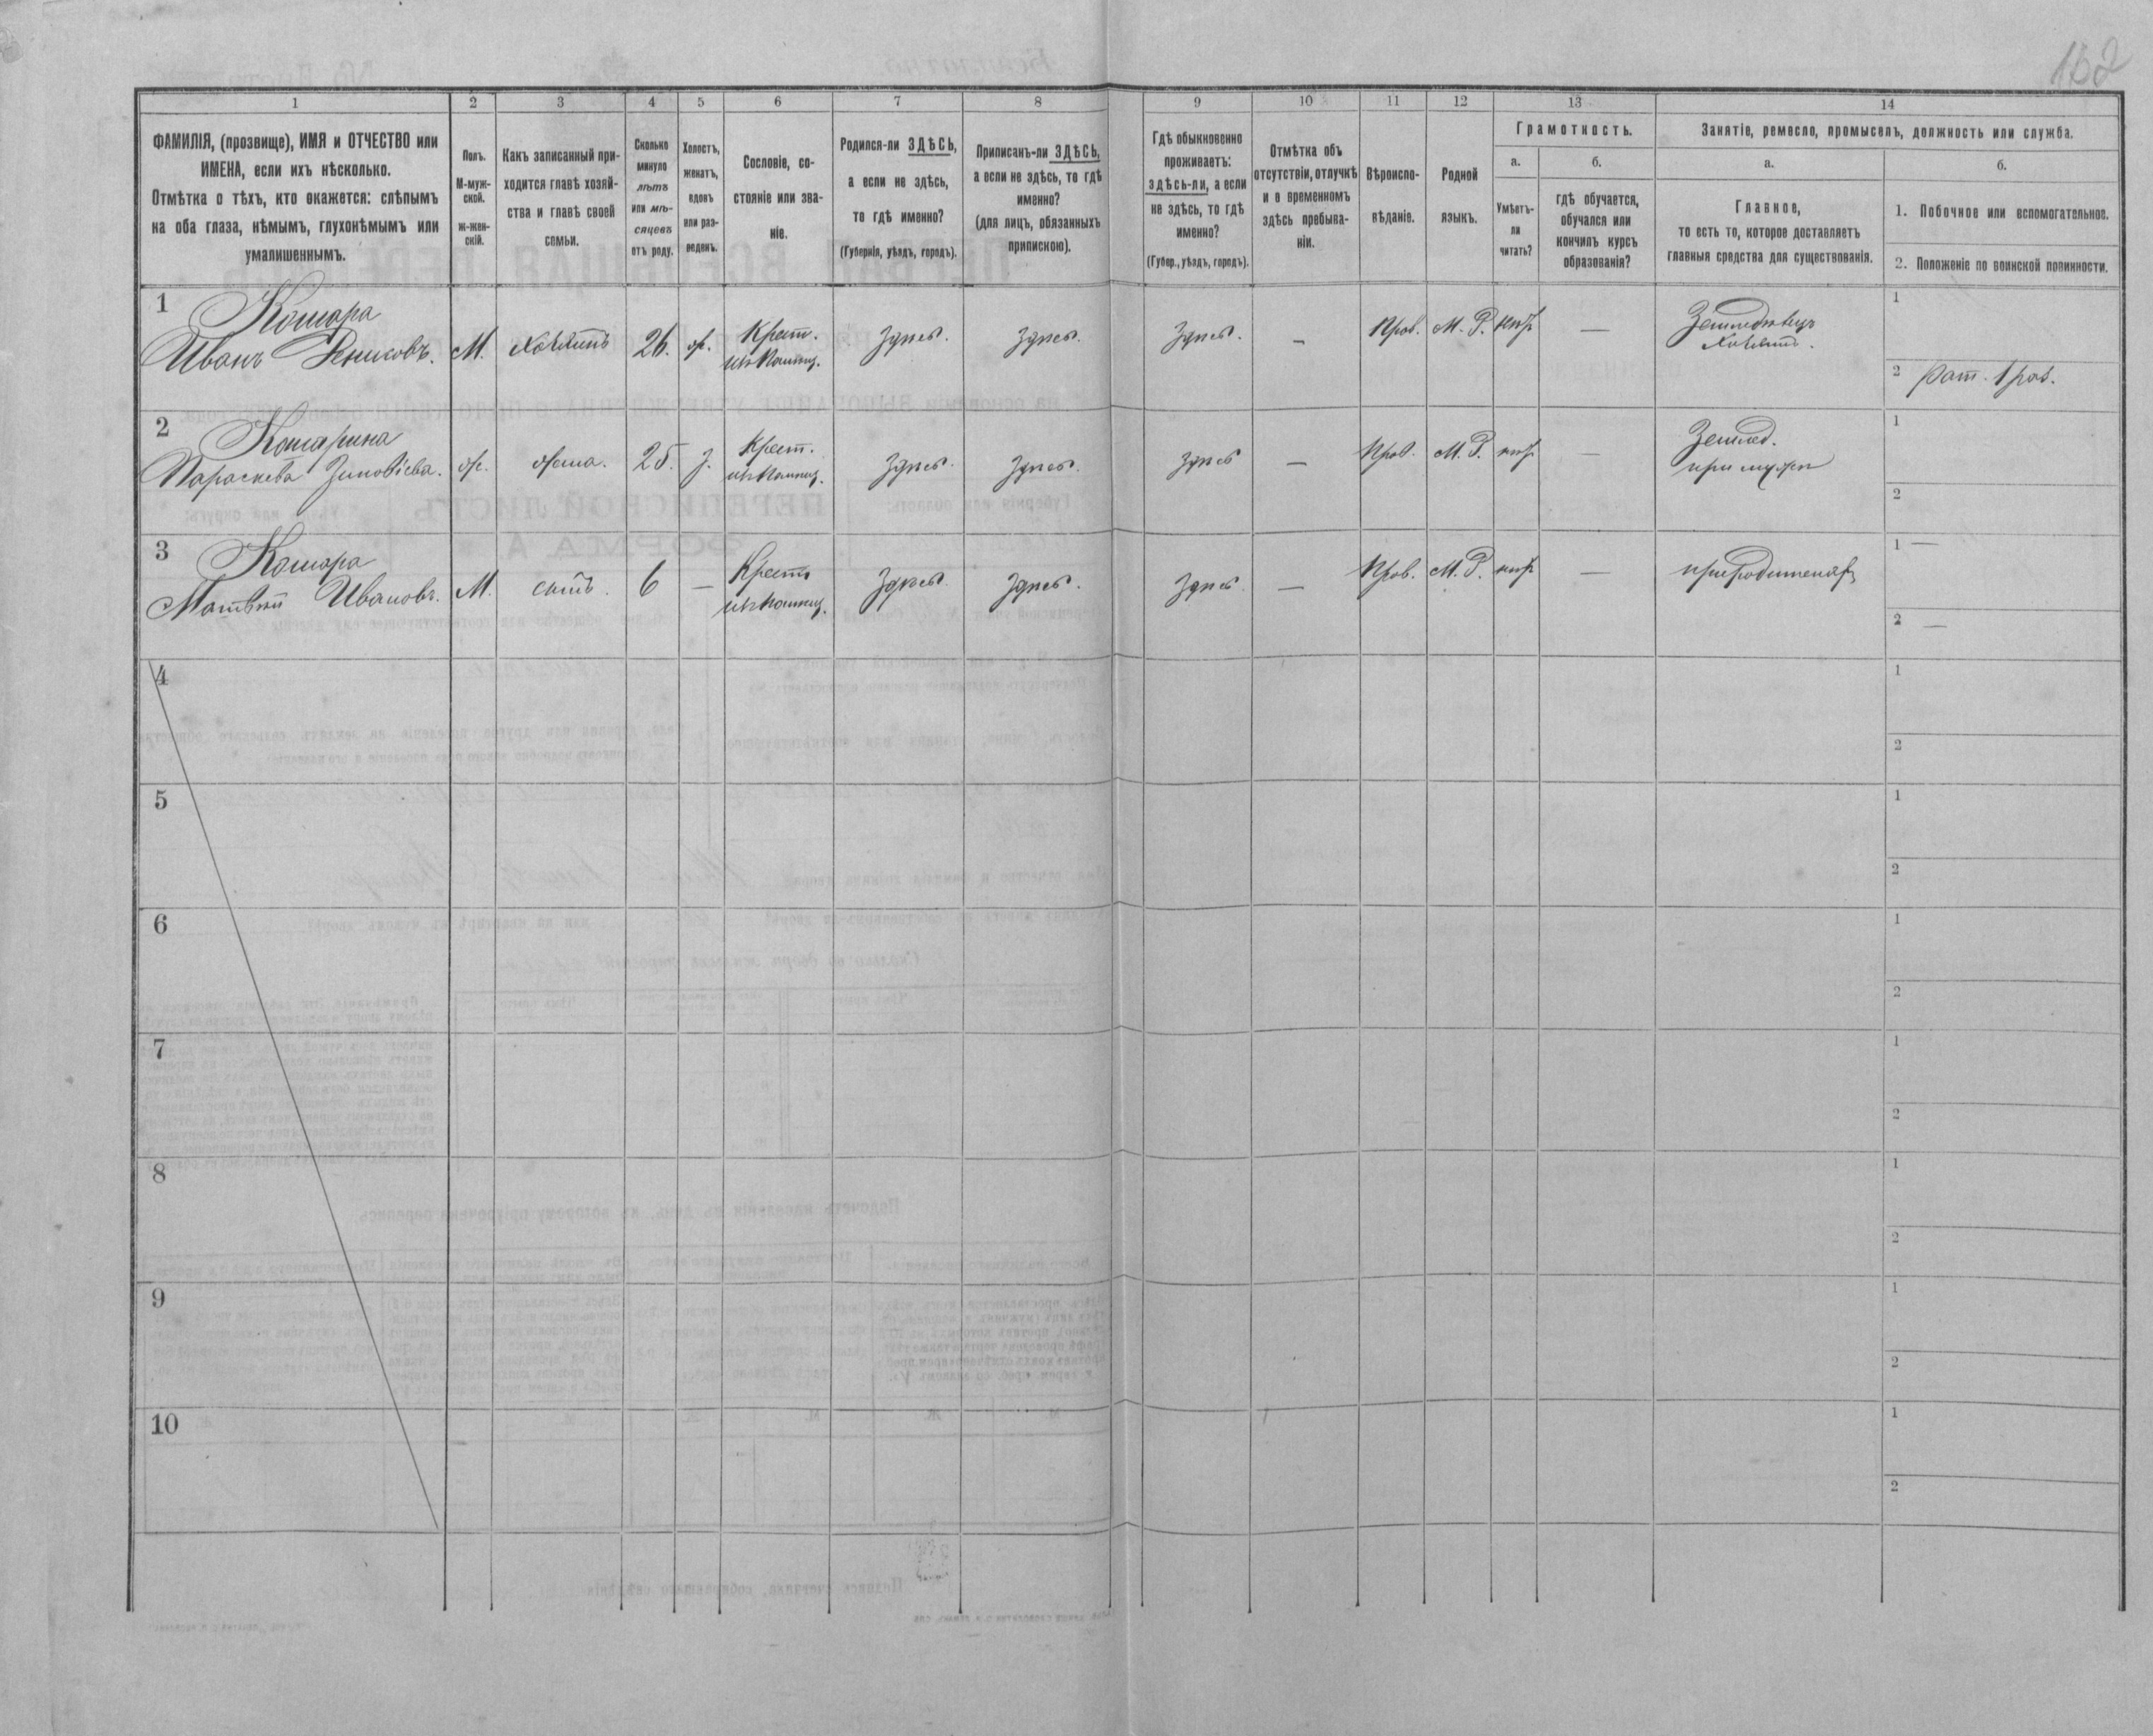 162
1
2
3
4
5
6
7
8
9
10
11
12
13
14
ФАМИЛІЯ, (прозвище), ИМЯ и ОТЧЕСТВО или
ИМЕНА, если ихъ нѣсколько.
Отмѣтка о тѣхъ, кто окажется: слѣпымъ
на оба глаза, нѣмымъ, глухонѣмымъ или
умалишеннымъ.
Полъ.
М-муж-
ской.
ж-жен-
скій.
Какъ записанный при-
ходится главѣ хозяй-
ства и главѣ своей
семьи.
Сколько
минуло
лѣтъ
или мѣ-
сяцевъ
отъ роду.
Холостъ,
женатъ,
вдовъ
или раз-
веденъ.
Сословіе, со-
стояніе или зва-
ніе.
Родился-ли ЗДѢСЬ,
а если не здѣсь,
то гдѣ именно?
(Губернія, уѣздъ, городъ).
Приписанъ-ли ЗДѢСЬ,
а если не здѣсь, то гдѣ
именно?
(для лицъ, обязанныхъ
припискою).
Гдѣ обыкновенно
проживаетъ:
здѣсь-ли, а если
не здѣсь, то гдѣ
именно?
(Губер., уѣздъ, городъ).
Отмѣтка объ
отсутствіи, отлучкѣ
и о временномъ
здѣсь пребыва-
ніи.
Вѣроиспо-
вѣданіе.
Родной
языкъ.
Грамотность.
а.
Умѣетъ-
ли
читать?
б.
гдѣ обучается,
обучался или
кончилъ курсъ
образованія?
Занятіе, ремесло, промыселъ, должность или служба.
а.
Главное,
то есть то, которое доставляетъ
главныя средства для существованія.
б.
1. Побочное или вспомогательное.
2. Положеніе по воинской повинности.
1
Кошара
Иванъ
М.
хозяинъ
26.
ж.
Крест.
здѣсь.
здѣсь.
здѣсь.
–
Прав.
М. Р.
—
хозяинъ.
1
2 Рат. 1 раз.
2
Кошарина
Параскева Зиновіева.
ж.
жена.
25.
з.
Крест.
здѣсь.
здѣсь.
здѣсь
—
Прав.
М. Р.
—
Землед.
при мужѣ
1
2
3
Кошара
Матвѣй Ивановъ.
М.
сынъ.
6
—
Крест
здѣсь.
здѣсь.
здѣсь
—
Прав.
М. Р.
—
1 —
2 —
4
1
2
5
1
2
6
1
2
7
1
2
8
1
2
9
1
2
10
1
2